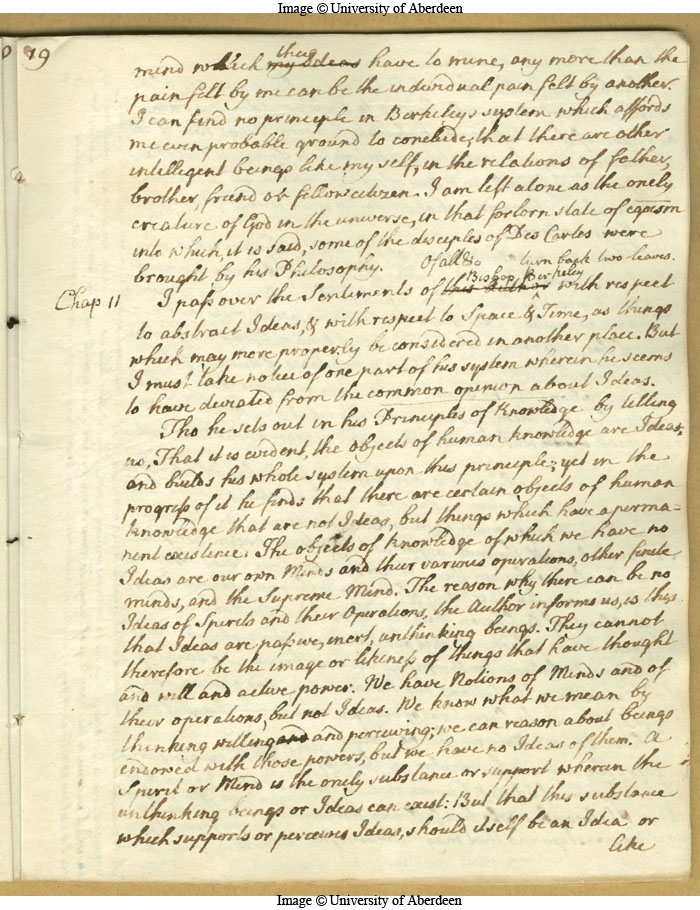 Image © University of Aberdeen
79
mind which my Ideas they have to mine, any more than the
pain felt by me can be the individual pain felt by another.
I can find no principle in Berkeleys system which affords
me even probable ground to conclude, that there are other
intelligent beings like my self, in the relations of father,
brother, friend or fellow citizen. I am left alone as the onely
creature of God in the universe, in that forlorn state of egoism
into which, it is said, some of the disciples of Des Cartes were
brought by his Philosophy. Of all &c turn back two leaves.
Chap 11 I pass over the Sentiments of this Author Bishop Berkeley with respect
to abstract Ideas, & with respect to Space & Time, as things
which may more properly be considered in another place. But
I must take notice of one part of his system wherein he seems
to have deviated from the common opinion about Ideas.
Tho he sets out in his Principles of Knowledge by telling
us, That it is evident, the objects of human knowledge are Ideas,
and builds his whole system upon this principle; yet in the
progress of it he finds that there are certain objects of human
knowledge that are not Ideas, but things which have a perma=
nent existence. The objects of knowledge of which we have no
Ideas are our own Minds and their various operations, other finite
minds, and the Supreme Mind. The reason why there can be no
Ideas of Spirits and their Operations, the Author informs us, is this
that Ideas are passive, inert, unthinking beings. They cannot
therefore be the image or likeness of things that have thought
and will and active power. We have Notions of Minds and of
their operations, but not Ideas. We know what we mean by
thinking willing and and perceiving; we can reason about beings
endowed with those powers, but we have no Ideas of them. A
Spirit or Mind is the onely substance or support wherein the
unthinking beings or Ideas can exist: But that this substance
which supports or perceives Ideas, should itself be an Idea or
like
Image © University of Aberdeen